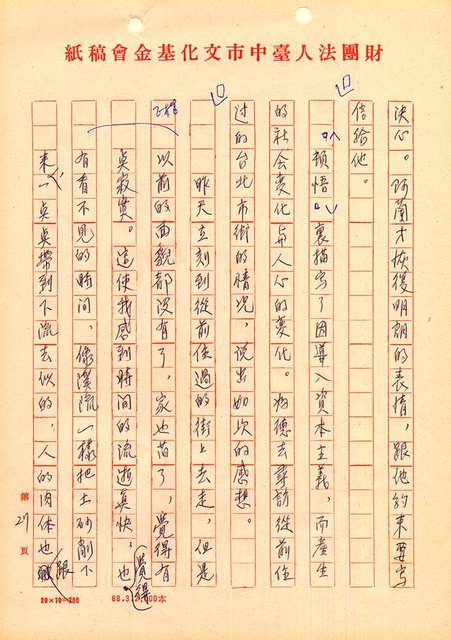 財團法人臺中市文化基金會稿紙
決心。阿蘭才恢復明朗的表情，跟他約束要寫
信給他。
「頓悟」裏描写了因導入資本主義，而產生
的社会変化与人心的变化。為德去尋訪從前住
过的台北市街的情况，说出如次的感想。
昨天立刻到從前住過的街上去走，但是
以前的面貌都没有了，家也 了，覺得有
点寂寞。這使我感到時间的流逝真快，也覺得
有看不見的時间，像溪流一樣把土砂削下
来，一点点帶到下流去似的。人的肉体也跟
2格
第27頁
20×10=200
68.3. 00本